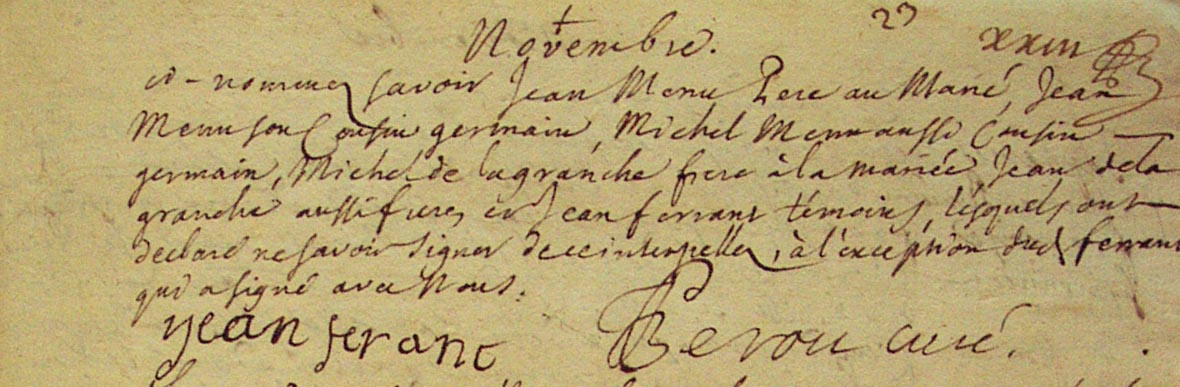 23
Novembre. xxiii
cy-nommes savoir Jean Menu Pere au Marié, Jean
Menu son Cousin germain, Michel Menu aussi Cousin
germain, Michel de lagranche frere à la mariée Jean dela
granche aussi frere, et Jean ferrant témoins, lesquels ont
declaré ne savoir signer de ce interpellés, à l'exception dud ferrant
qui a signé avec Nous.
jean ferant Berou curé.